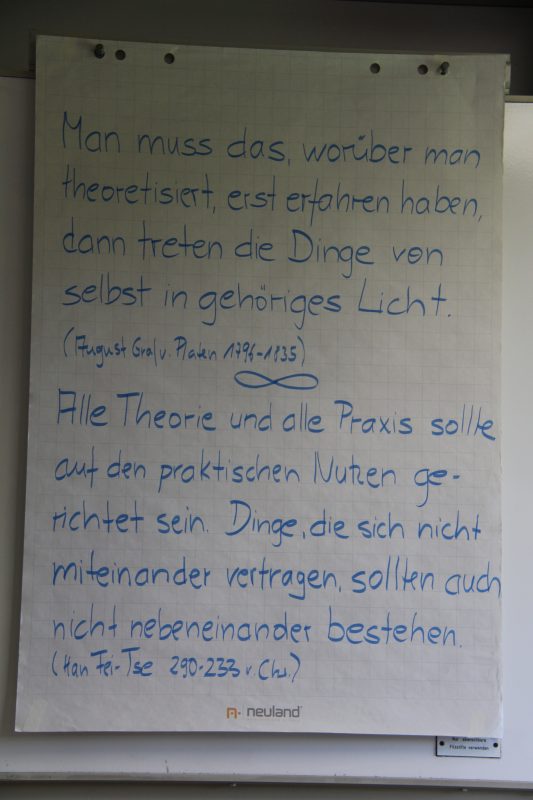 Man muss das, worüber man
theoretisiert, erst erfahren haben,
dann treten die Dinge von
selbst in gehöriges Licht.
(August Graf v. Platen 1796-1835)
Alle Theorie und alle Praxis sollte
auf den praktischen Nutzen ge-
richtet sein. Dinge, die sich nicht
miteinander vertragen, sollten auch
nicht nebeneinander bestehen.
(Han Fei-Tse 290-233 v. Chr.)
neuland
Nur abwischbare
Filzstifte verwenden